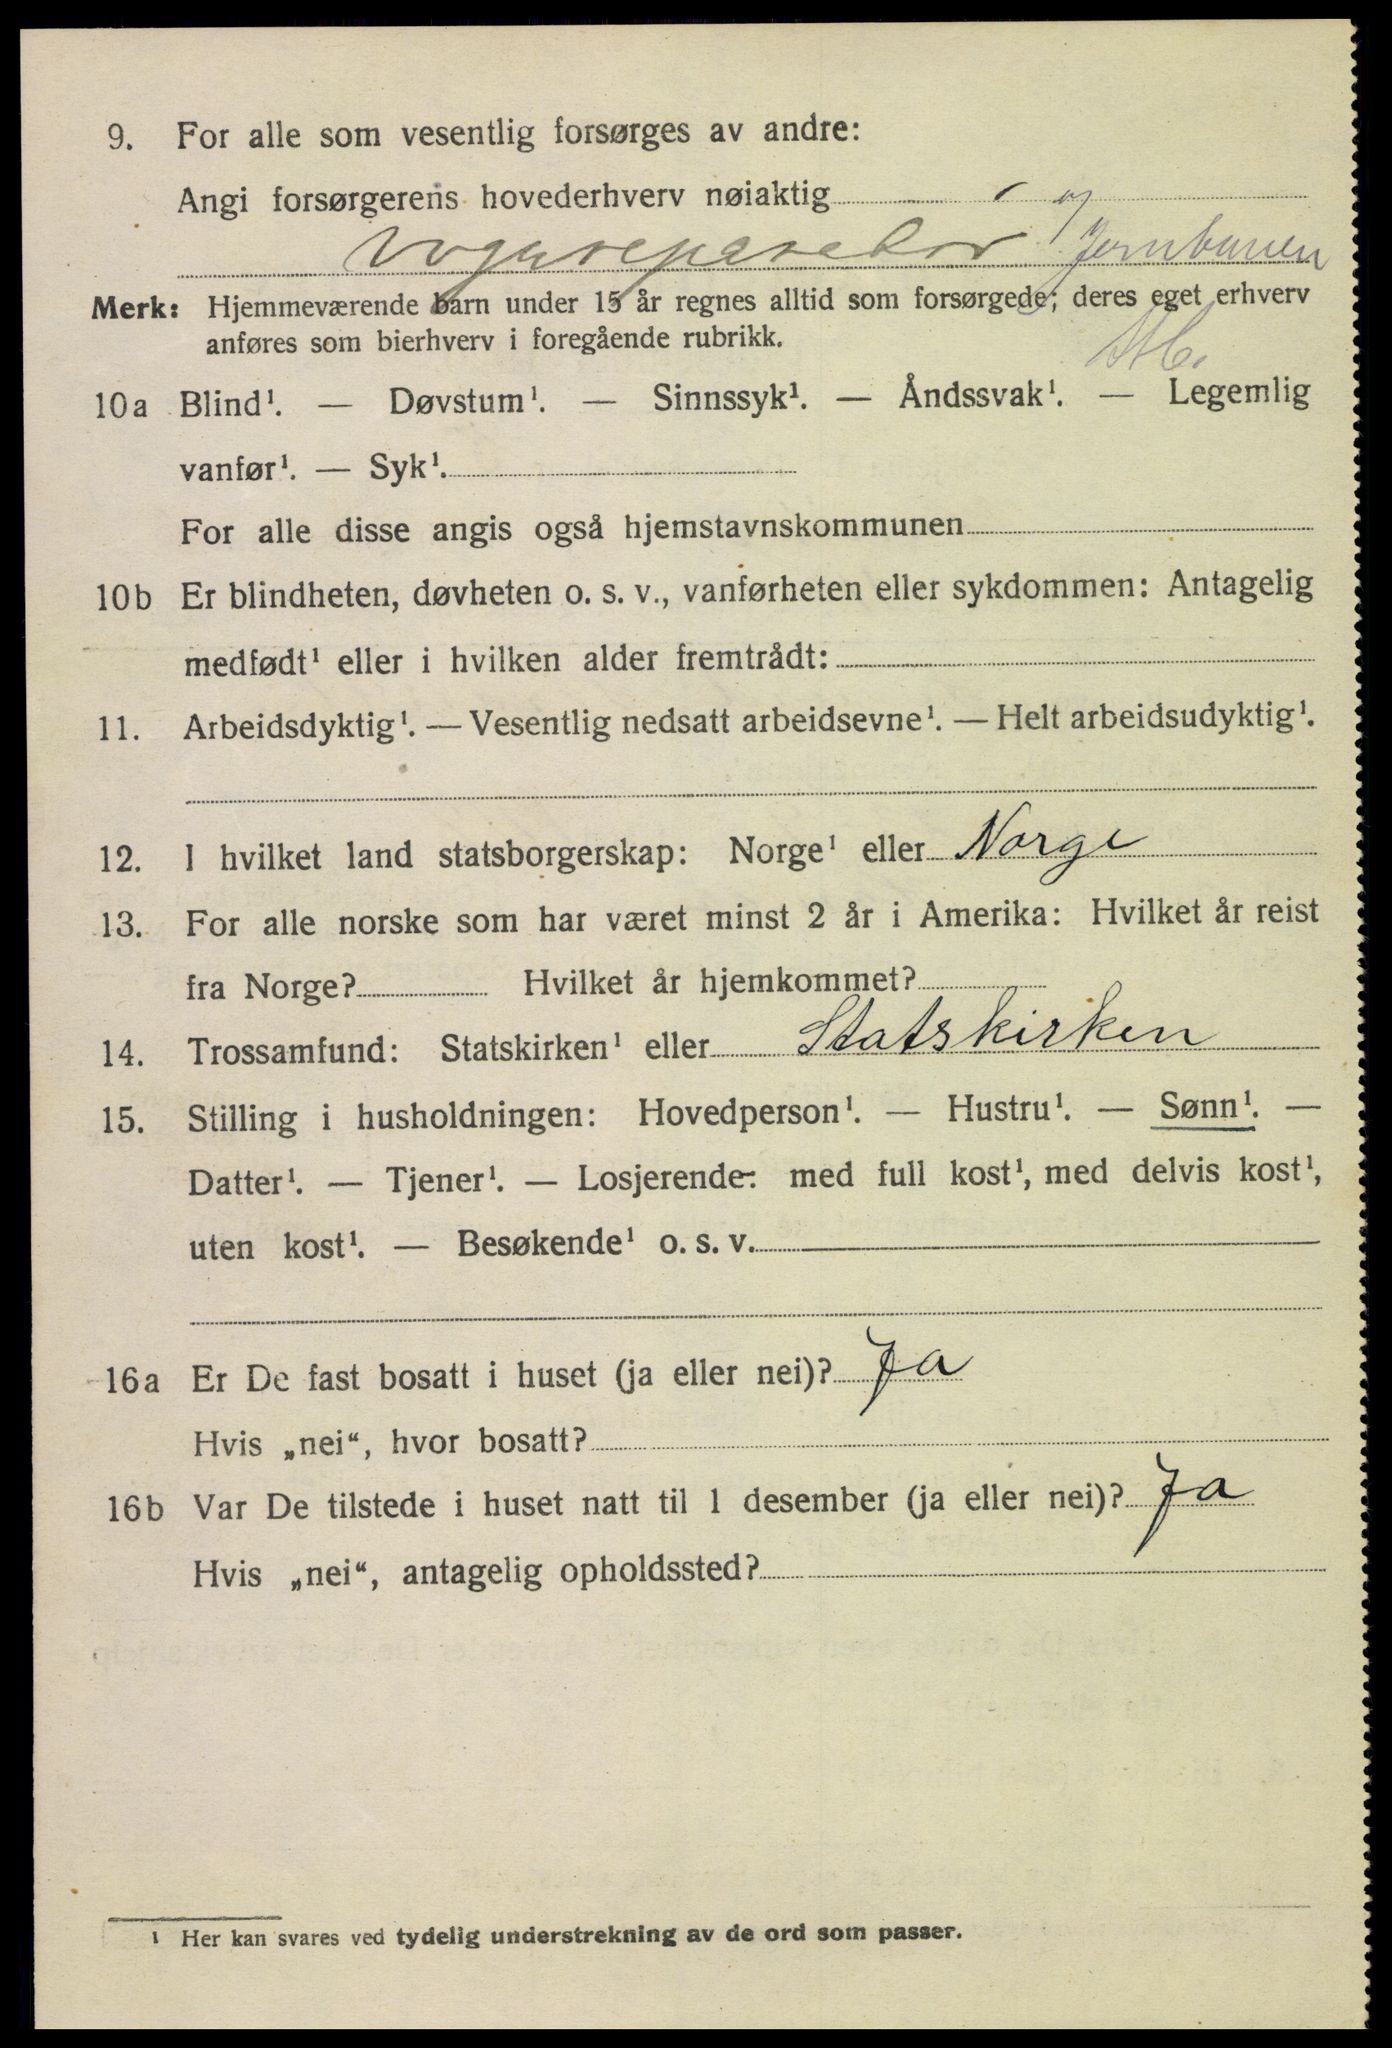 9. For alle som vesentlig forsørges av andre:
Angi forsørgerens hovederhverv nøiaktig
vognreparatør v/ Jernbanen
Merk: Hjemmeværende barn under 15 år regnes alltid som forsørgede; deres eget erhverv
anføres som bierhverv i foregående rubrikk.
10a Blind¹. — Døvstum¹. — Sinnssyk¹. — Åndssvak¹. — Legemlig
vanfør¹. — Syk¹.
For alle disse angis også hjemstavnskommunen
10b Er blindheten, døvheten o. s. v., vanførheten eller sykdommen: Antagelig
medfødt¹ eller i hvilken alder fremtrådt:
11. Arbeidsdyktig¹. — Vesentlig nedsatt arbeidsevne¹. — Helt arbeidsudyktig¹.
12. I hvilket land statsborgerskap: Norge¹ eller Norge
13. For alle norske som har været minst 2 år i Amerika: Hvilket år reist
fra Norge? Hvilket år hjemkommet?
14. Trossamfund: Statskirken¹ eller Statskirken
15. Stilling i husholdningen: Hovedperson¹. — Hustru¹. — Sønn¹. —
Datter¹. — Tjener¹. — Losjerende: med full kost¹, med delvis kost¹,
uten kost¹. — Besøkende¹ o. s. v.
16a Er De fast bosatt i huset (ja eller nei)? Ja
Hvis „nei“, hvor bosatt?
16b Var De tilstede i huset natt til 1 desember (ja eller nei)? Ja
Hvis „nei“, antagelig opholdssted?
¹ Her kan svares ved tydelig understrekning av de ord som passer.